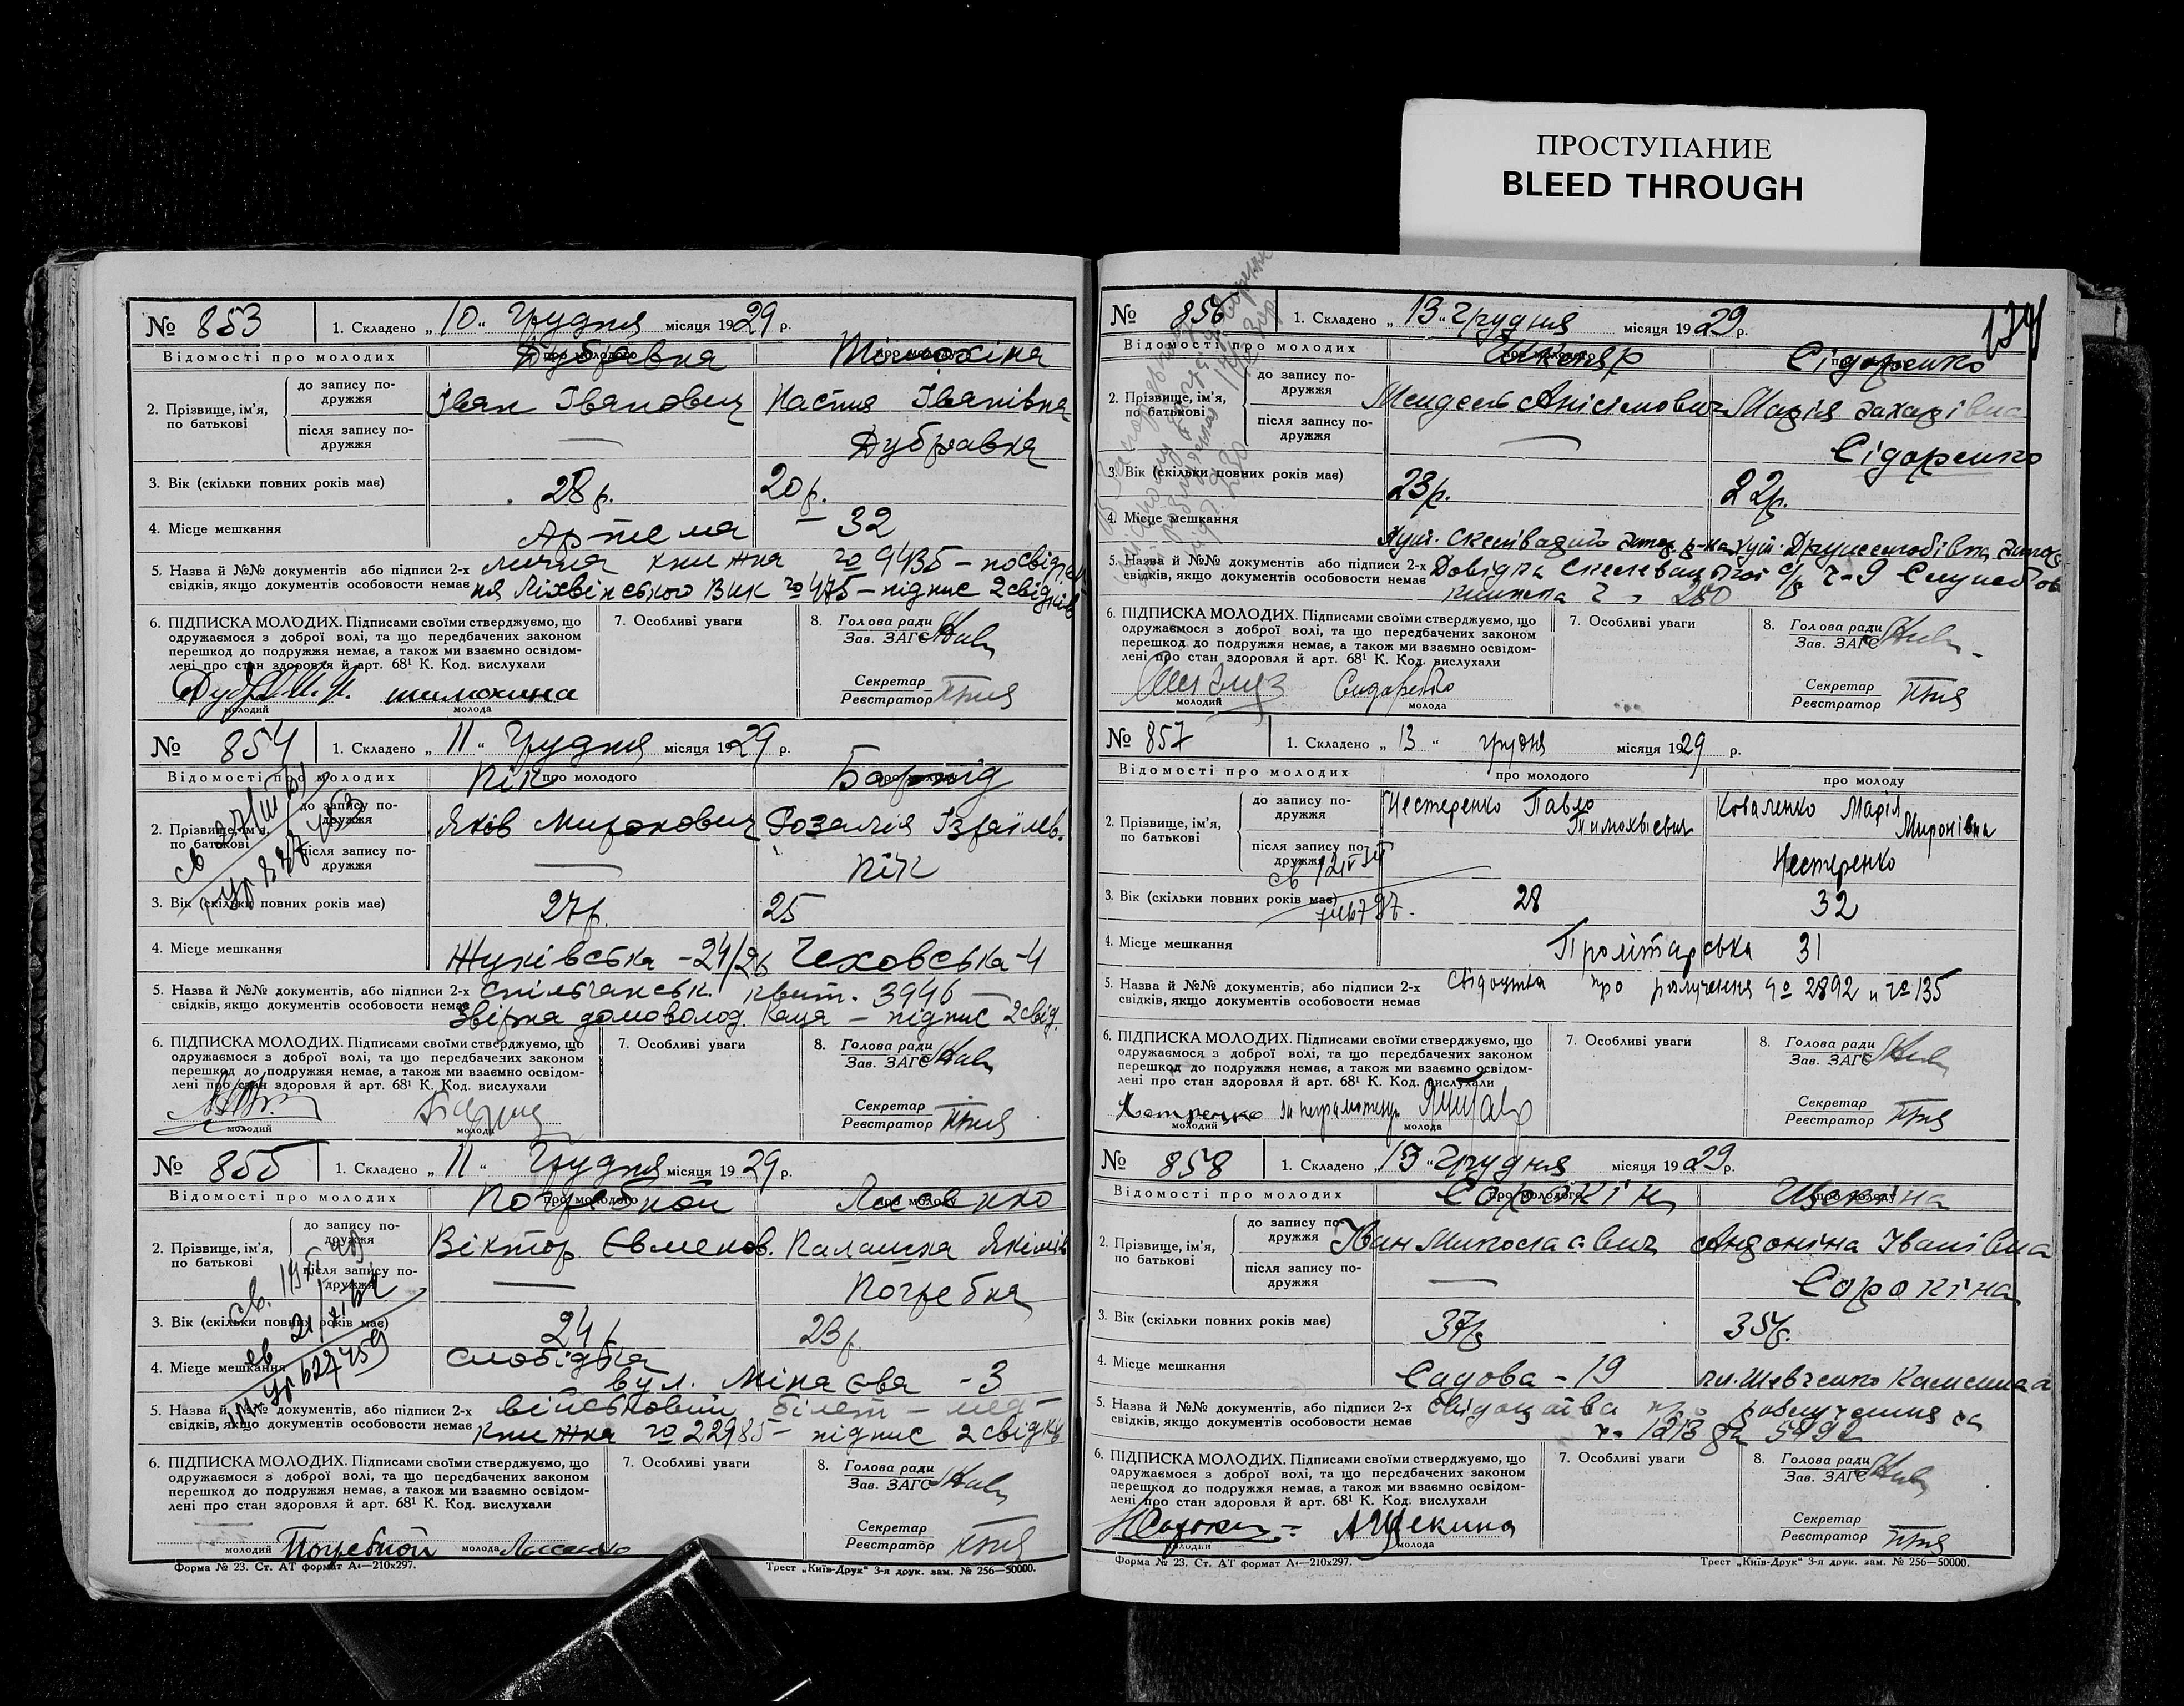 ПРОСТУПАНИЕ
BLEED THROUGH
№ 853 1. Складено „ 10 “ Грудня місяця 1929 р.
Відомості про молодих про молодого Дубравка про молоду Тімохіна
2. Прізвище, ім’я, по батькові
до запису подружжя Іван Іванович Настя Іванівна
після запису подружжя — Дубравка
3. Вік (скільки повних років має) 28 р. 20 р.
4. Місце мешкання Артема — 32
5. Назва й №№ документів, або підписи 2-х лична книжка № 9435 –
свідків, якщо документів особовости немає ВИК № 475 – підпис 2 свідків
6. ПІДПИСКА МОЛОДИХ. Підписами своїми стверджуємо, що
одружаємося з доброї волі, та що передбачених законом
перешкод до подружжя немає, а також ми взаємно освідом-
лені про стан здоровля й арт. 68¹ К. Код. вислухали
молодий тимохина молода
7. Особливі уваги
8. Голова ради
Зав. ЗАГС
Секретар
Реєстратор
№ 854 1. Складено „ 11 “ Грудня місяця 1929 р.
Відомості про молодих Пік про молодого про молоду
2. Прізвище, ім’я, по батькові
до запису подружжя Яків Миронович Розалія Ізраїлев.
після запису подружжя — Пік
3. Вік (скільки повних років має) 27 р. 25
4. Місце мешкання Жуківська – 24/26 Чеховська – 4
5. Назва й №№ документів, або підписи 2-х квит. 3946 –
свідків, якщо документів особовости немає домоволод. Каца – підпис 2 свід.
6. ПІДПИСКА МОЛОДИХ. Підписами своїми стверджуємо, що
одружаємося з доброї волі, та що передбачених законом
перешкод до подружжя немає, а також ми взаємно освідом-
лені про стан здоровля й арт. 68¹ К. Код. вислухали
молодий молода
7. Особливі уваги
8. Голова ради
Зав. ЗАГС
Секретар
Реєстратор
№ 855 1. Складено „ 11 “ Грудня місяця 1929 р.
Відомості про молодих Погребной про молодого про молоду
2. Прізвище, ім’я, по батькові
до запису подружжя Віктор Євменов. Якімів
після запису подружжя — Погребна
3. Вік (скільки повних років має) 24 р. 23 р.
4. Місце мешкання Слобідка
вул. Мінаєва – 3
5. Назва й №№ документів, або підписи 2-х військовий білет –
свідків, якщо документів особовости немає книжка № 22985 – підпис 2 свідків
6. ПІДПИСКА МОЛОДИХ. Підписами своїми стверджуємо, що
одружаємося з доброї волі, та що передбачених законом
перешкод до подружжя немає, а також ми взаємно освідом-
лені про стан здоровля й арт. 68¹ К. Код. вислухали
молодий Погребной молода
7. Особливі уваги
8. Голова ради
Зав. ЗАГС
Секретар
Реєстратор
Форма № 23. Ст. АТ формат А₄—210x297. Трест „Київ-Друк“ 3-я друк. зам. № 256—50000.
№ 856 1. Складено „ 13 “ Грудня місяця 1929 р.
Відомості про молодих про молодого Шкляр про молоду Сідоренко
2. Прізвище, ім’я, по батькові
до запису подружжя Мендель Анісімович Марія Захарівна
після запису подружжя — Сідоренко
3. Вік (скільки повних років має) 23 р. 22 р.
4. Місце мешкання
5. Назва й №№ документів, або підписи 2-х Довідка с/р
свідків, якщо документів особовости немає книжка 280
6. ПІДПИСКА МОЛОДИХ. Підписами своїми стверджуємо, що
одружаємося з доброї волі, та що передбачених законом
перешкод до подружжя немає, а також ми взаємно освідом-
лені про стан здоровля й арт. 68¹ К. Код. вислухали
молодий Сидоренко молода
7. Особливі уваги
8. Голова ради
Зав. ЗАГС
Секретар
Реєстратор
№ 857 1. Складено „ 13 “ грудня місяця 1929 р.
Відомості про молодих про молодого про молоду
2. Прізвище, ім’я, по батькові
до запису подружжя Нестеренко Павло Тимохвієвич Коваленко Марія Миронівна
після запису подружжя Нестеренко
3. Вік (скільки повних років має) 28 32
4. Місце мешкання Пролітарська 31
5. Назва й №№ документів, або підписи 2-х про розлучення № 2892 и № 135
свідків, якщо документів особовости немає
6. ПІДПИСКА МОЛОДИХ. Підписами своїми стверджуємо, що
одружаємося з доброї волі, та що передбачених законом
перешкод до подружжя немає, а також ми взаємно освідом-
лені про стан здоровля й арт. 68¹ К. Код. вислухали
молодий молода
7. Особливі уваги
8. Голова ради
Зав. ЗАГС
Секретар
Реєстратор
№ 858 1. Складено „ 13 “ Грудня місяця 1929 р.
Відомості про молодих Сорокін про молодого Щекіна про молоду
2. Прізвище, ім’я, по батькові
до запису подружжя Іван Миколаєвич Андоніна Іванівна
після запису подружжя — Сорокіна
3. Вік (скільки повних років має) 37 р. 35 р.
4. Місце мешкання Садова – 19
5. Назва й №№ документів, або підписи 2-х свідоцтва про розлучення за
свідків, якщо документів особовости немає № 1213 5492
6. ПІДПИСКА МОЛОДИХ. Підписами своїми стверджуємо, що
одружаємося з доброї волі, та що передбачених законом
перешкод до подружжя немає, а також ми взаємно освідом-
лені про стан здоровля й арт. 68¹ К. Код. вислухали
молодий А Щекина молода
7. Особливі уваги
8. Голова ради
Зав. ЗАГС
Секретар
Реєстратор
Форма № 23. Ст. АТ формат А₄—210x297. Трест „Київ-Друк“ 3-я друк. зам. № 256—50000.